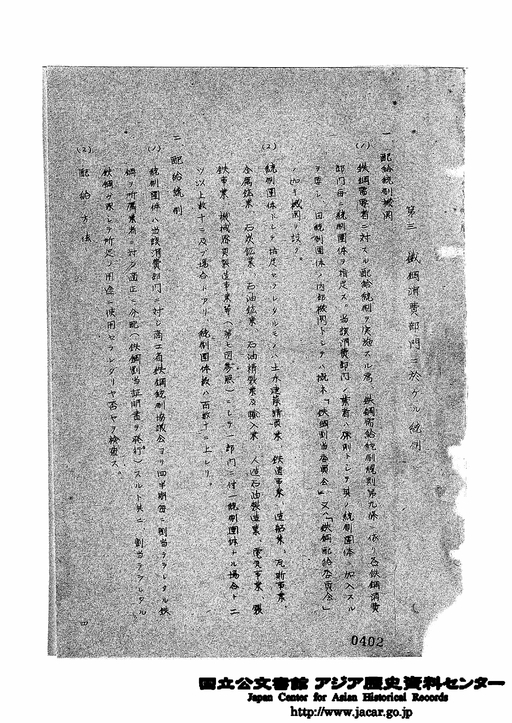 第三 鉄鋼消費部門ニ於ケル統制
一 配給統制機関
(1) 鉄鋼需要者ニ対スル配給統制ヲ実施スル為、鉄鋼需給統制規則第九條ニ依リ各鉄鋼消費
部門毎ニ統制団体ヲ指定ス、当該消費部門ノ業者ハ原則トシテ其ノ統制団体ニ加入スル
ヲ要シ、団体内部機関トシテハ概ネ「鉄鋼割当委員会」又ハ「鉄鋼配給委員会」
ノ如キ機関ヲ設ク。
(2) 統制団体トシテ指定セラレタルモノハ土木建築請負業、鉄道事業、造船業、瓦斯事業
金属鉱業、石炭鉱業、石油鉱業、石油精製業及輸入業、人造石油製造業、電気事業、製
鉄事業、機械器具製造事業等(第七図参照)ニシテ一部門ニ付一統制団体ナル場合ト二
ツ以上数十ニ及ブ場合トアリ、統制団体数ハ百数十ニ上レリ。
二 配給統制
(1) 統制団体ハ当該消費部門ニ対シ商工省鉄鋼統制協議会ヨリ四半期毎ニ割当ラレタル鉄
鋼ヲ所属業者ニ対シ適正ニ分配(鉄鋼割当証明書ヲ発行)スルト共ニ、割当ラレタル
鉄鋼ガ果シテ所定ノ用途ニ使用セラレタリヤ否ヤヲ検査ス。
(2) 配給方法
四
0402
国立公文書館 アジア歴史資料センター
Japan Center for Asian Historical Records
http://www.jacar.go.jp